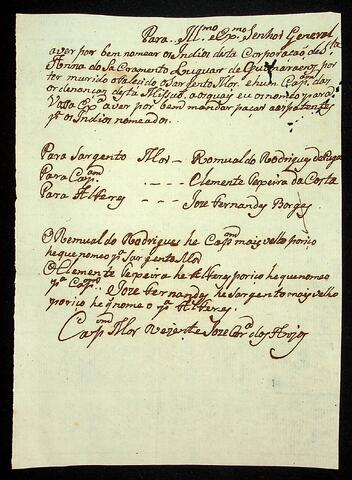 Para Illmo Exmo Senhor General
aver por bem nomear os Indios desta Corporação de Sta
Anna do Sacramento Luguar de Guimaraens por
ter murido o Sargento Mor e hum Capam
ordenancas desta as quays eu os nomeio para
Vossa Exa aver por bem mandar paçar as patentes
pa os Indios nomeados.
Para Sargento Mor — Romualdo Rodrigues
Para Capam — — - Clemente Texeira da Costa
Para Alferes — - — Joze Fernandes Borges
O Remualdo Rodrigues he Capam mais velho poriço
he que nomeo pa Sargento Mor
O Clemente Texeira he Alferes poriço he que nomeo
pa Capam Joze Fernandes he Sargento mais velho
poriço he q nome o pa Alferes
Capm Mor Joze dos